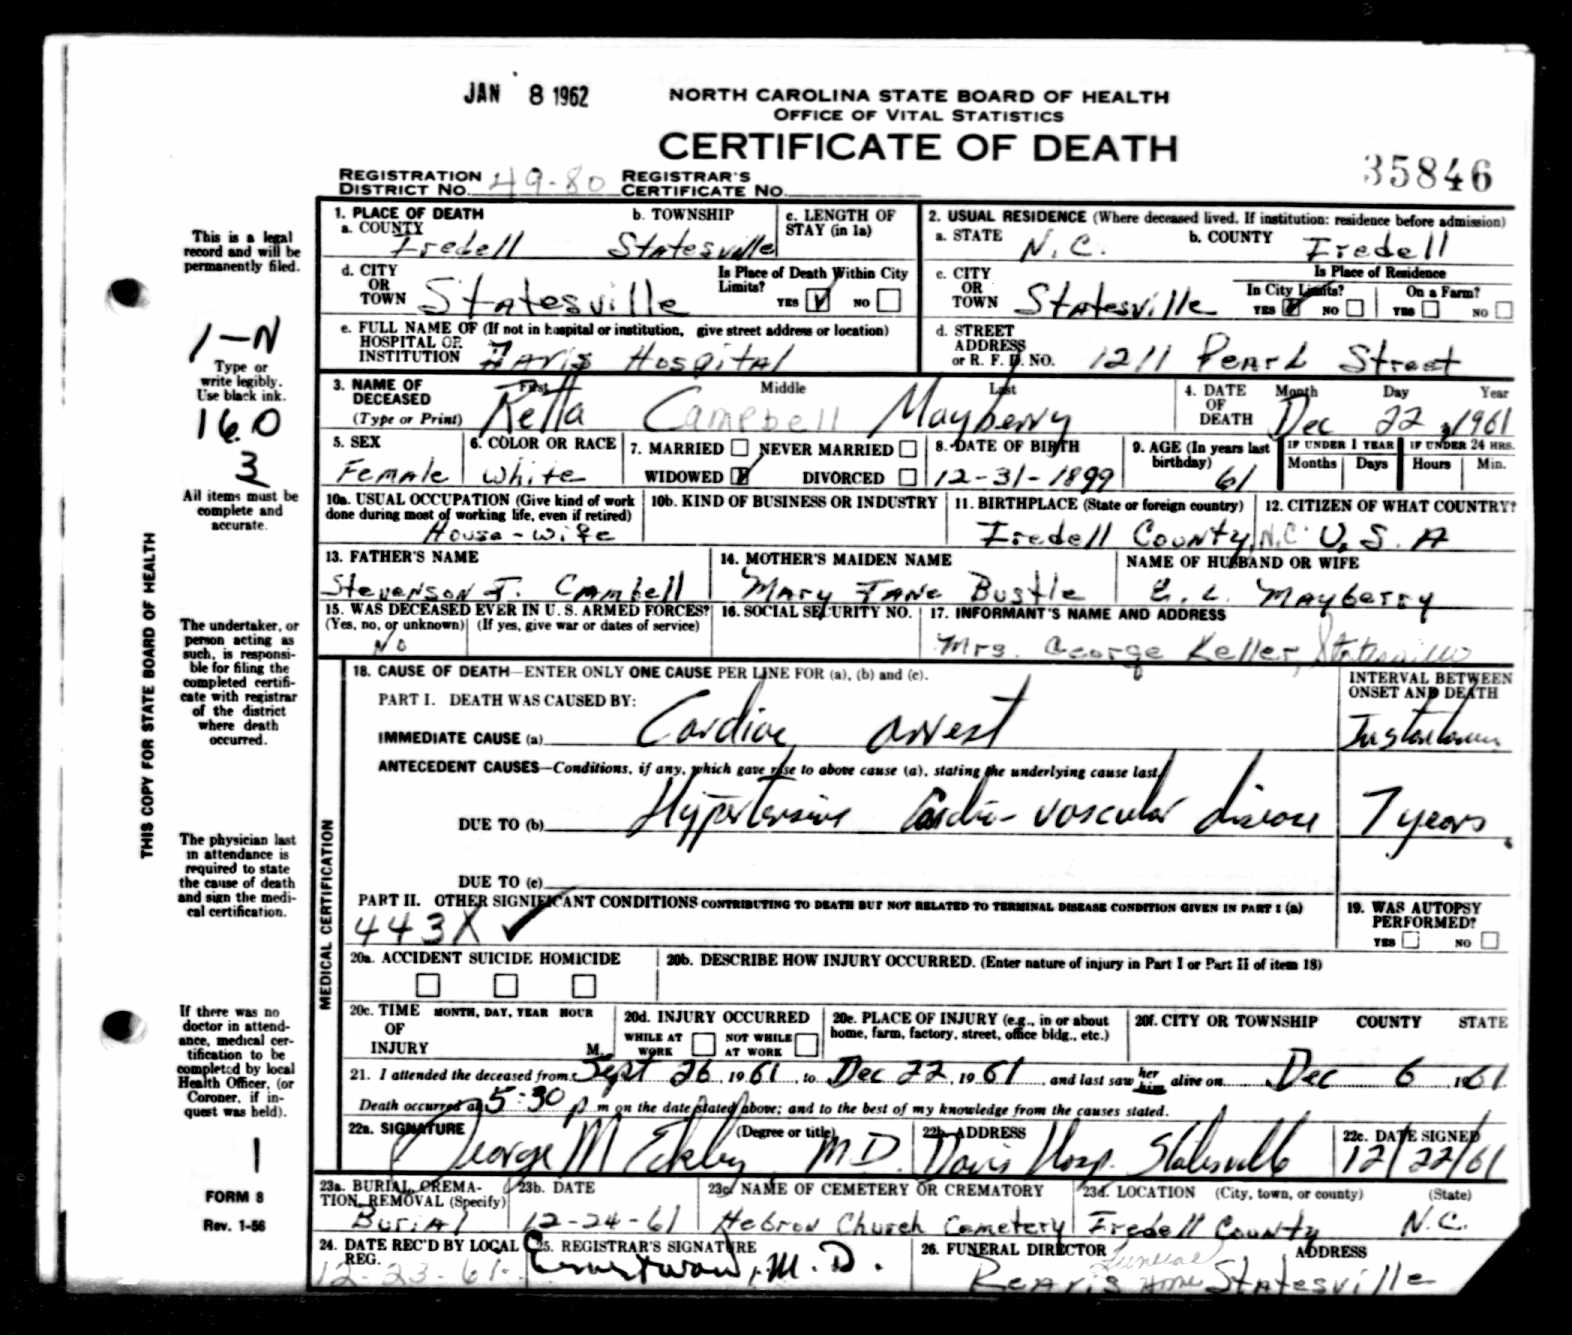 JAN 8 1962
NORTH CAROLINA STATE BOARD OF HEALTH
OFFICE OF VITAL STATISTICS
CERTIFICATE OF DEATH
35846
REGISTRATION DISTRICT No. 49-80 REGISTRAR'S CERTIFICATE No.
This is a legal record and will be permanently filed.
1-N
Type or write legibly. Use black ink.
160
3
All items must be complete and accurate.
THIS COPY FOR STATE BOARD OF HEALTH
The undertaker, or person acting as such, is responsible for filing the completed certificate with registrar of the district where death occurred.
The physician last in attendance is required to state the cause of death and sign the medical certification.
If there was no doctor in attendance, medical certification to be completed by local Health Officer, (or Coroner, if inquest was held).
1
FORM 8
Rev. 1-56
1. PLACE OF DEATH
a. COUNTY Iredell
b. TOWNSHIP Statesville
c. LENGTH OF STAY (in 1a)
2. USUAL RESIDENCE (Where deceased lived. If institution: residence before admission)
a. STATE N.C.
b. COUNTY Iredell
d. CITY OR TOWN Statesville
Is Place of Death Within City Limits? YES NO
c. CITY OR TOWN Statesville
Is Place of Residence
In City Limits? YES NO
On a Farm? YES NO
e. FULL NAME OF (If not in hospital or institution, give street address or location) HOSPITAL OR INSTITUTION Davis Hospital
d. STREET ADDRESS or R. F. D. NO. 1211 Pearl Street
3. NAME OF DECEASED (Type or Print)
First Middle Last
Retta Campbell Mayberry
4. DATE OF DEATH Month Day Year
Dec 22, 1961
5. SEX Female
6. COLOR OR RACE White
7. MARRIED NEVER MARRIED
WIDOWED DIVORCED
8. DATE OF BIRTH 12-31-1899
9. AGE (In years last birthday) 61
IF UNDER 1 YEAR Months Days
IF UNDER 24 HRS. Hours Min.
10a. USUAL OCCUPATION (Give kind of work done during most of working life, even if retired) House-wife
10b. KIND OF BUSINESS OR INDUSTRY
11. BIRTHPLACE (State or foreign country) Iredell County, N.C.
12. CITIZEN OF WHAT COUNTRY? U.S.A
13. FATHER'S NAME Stevenson J. Cambell
14. MOTHER'S MAIDEN NAME Mary Jane Bustle
NAME OF HUSBAND OR WIFE E. L. Mayberry
15. WAS DECEASED EVER IN U. S. ARMED FORCES? (Yes, no, or unknown) (If yes, give war or dates of service) No
16. SOCIAL SECURITY NO.
17. INFORMANT'S NAME AND ADDRESS
Mrs. George Keller, Statesville
MEDICAL CERTIFICATION
18. CAUSE OF DEATH—ENTER ONLY ONE CAUSE PER LINE FOR (a), (b) and (c).
INTERVAL BETWEEN ONSET AND DEATH
PART I. DEATH WAS CAUSED BY:
IMMEDIATE CAUSE (a) Cardiac arrest
ANTECEDENT CAUSES—Conditions, if any, which gave rise to above cause (a), stating the underlying cause last.
DUE TO (b) Hypertensive Cardio-vascular disease 7 years
DUE TO (c)
PART II. OTHER SIGNIFICANT CONDITIONS CONTRIBUTING TO DEATH BUT NOT RELATED TO TERMINAL DISEASE CONDITION GIVEN IN PART I (a)
443X ✓
19. WAS AUTOPSY PERFORMED?
YES NO
20a. ACCIDENT SUICIDE HOMICIDE
20b. DESCRIBE HOW INJURY OCCURRED. (Enter nature of injury in Part I or Part II of item 18)
20c. TIME OF INJURY MONTH, DAY, YEAR HOUR M.
20d. INJURY OCCURRED
WHILE AT WORK NOT WHILE AT WORK
20e. PLACE OF INJURY (e.g., in or about home, farm, factory, street, office bldg., etc.)
20f. CITY OR TOWNSHIP COUNTY STATE
21. I attended the deceased from Sept 26 1961, to Dec 22, 1961, and last saw her him alive on Dec 6 1961
Death occurred at 5:30 p m on the date stated above; and to the best of my knowledge from the causes stated.
22a. SIGNATURE (Degree or title)
George M Eckley M D.
22b. ADDRESS Davis Hosp. Statesville
22c. DATE SIGNED 12/22/61
23a. BURIAL, CREMATION, REMOVAL (Specify) Burial
23b. DATE 12-24-61
23c. NAME OF CEMETERY OR CREMATORY Hebron Church Cemetery
23d. LOCATION (City, town, or county) (State)
Iredell County N.C.
24. DATE REC'D BY LOCAL REG. 12-23-61
25. REGISTRAR'S SIGNATURE M.D.
26. FUNERAL DIRECTOR ADDRESS
Reavis Funeral Home Statesville